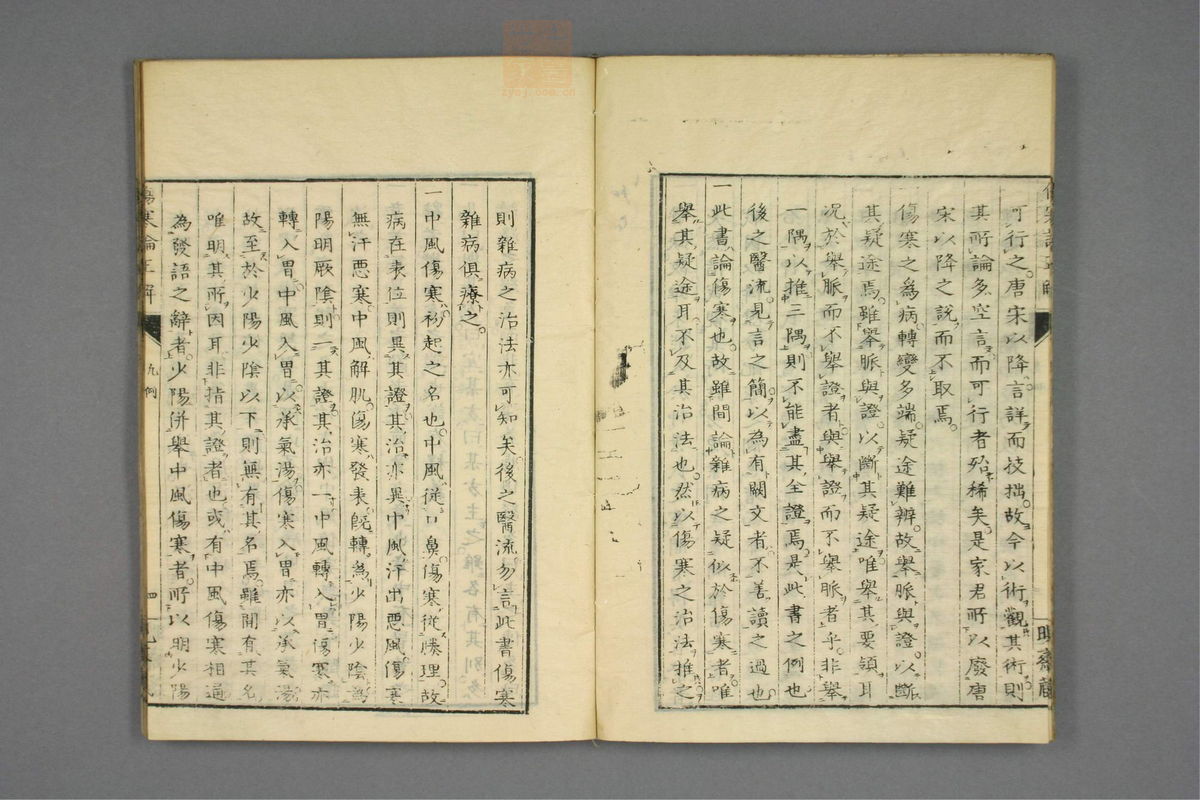 可行之唐宋以降言詳而技拙故今以術觀其術則
其所論多空言而可行者殆稀矣是家君所以廢唐
宋以降之説而不取焉
傷寒之為病轉變多端疑途難辨故舉脈與證以斷
其疑途焉雖舉脈與證以斷其疑途唯舉其要領耳
況於舉脈而不舉證者與舉證而不舉脈者乎非舉
一隅以推三隅則不能盡其全證焉是此書之例也
後之醫流見言之簡以為有闕文者不善讀之過也
一此書論傷寒也故雖間論雜病之疑似於傷寒者唯
舉其疑途耳不及其治法也然以傷寒之治法推之
則雜病之治法亦可知矣後之醫流勿言此書傷寒
雜病俱療之
一中風傷寒初起之名也中風從口鼻傷寒從腠理故
病在表位則異其證其治亦異中風汗出惡風傷寒
無汗惡寒中風解肌傷寒發表既轉為少陽少陰為
陽明厥陰則一其證其治亦一中風轉入胃傷寒亦
轉入胃中風入胃以承氣湯傷寒入胃亦以承氣湯
故至於少陽少陰以下則無有其名焉雖間有其名
唯明其所因耳非指其證者也或有中風傷寒相通
為發語之辭者少陽併舉中風傷寒者所以明少陽
傷寒論正解
凡例
四
zycj.com.cn